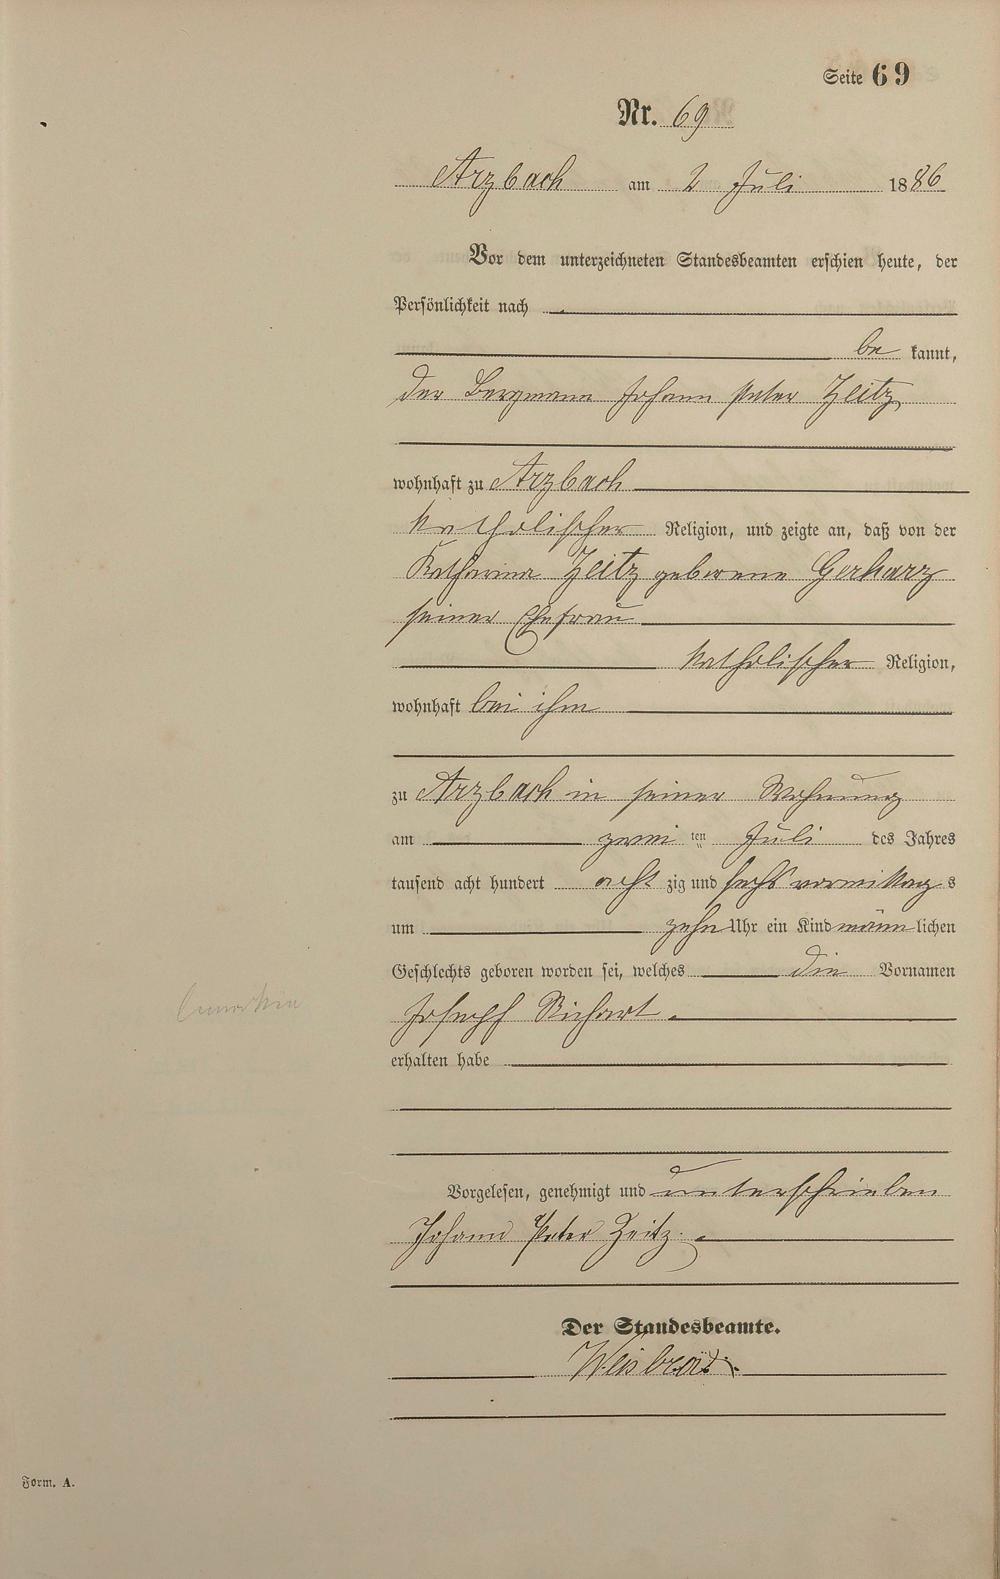 Seite 69
Nr. 69
Arzbach am 2 Juli 1886
Vor dem unterzeichneten Standesbeamten erschien heute, der
Persönlichkeit nach
be kannt,
der Bergmann Johann Peter Zeitz
wohnhaft zu Arzbach
katholischer Religion, und zeigte an, daß von der
Katharina Zeitz geborene Gerharz
seiner Ehefrau
katholischer Religion,
wohnhaft bei ihm
zu Arzbach in seiner Wohnung
am zwei ten Juli des Jahres
tausend acht hundert acht zig und sechs vormittag s
um zehn Uhr ein Kind männ lichen
Geschlechts geboren worden sei, welches die Vornamen
Joseph Richart.
erhalten habe
Vorgelesen, genehmigt und unterschrieben
Johann Peter Zeitz.
Der Standesbeamte.
Weisbrod.
Form. A.